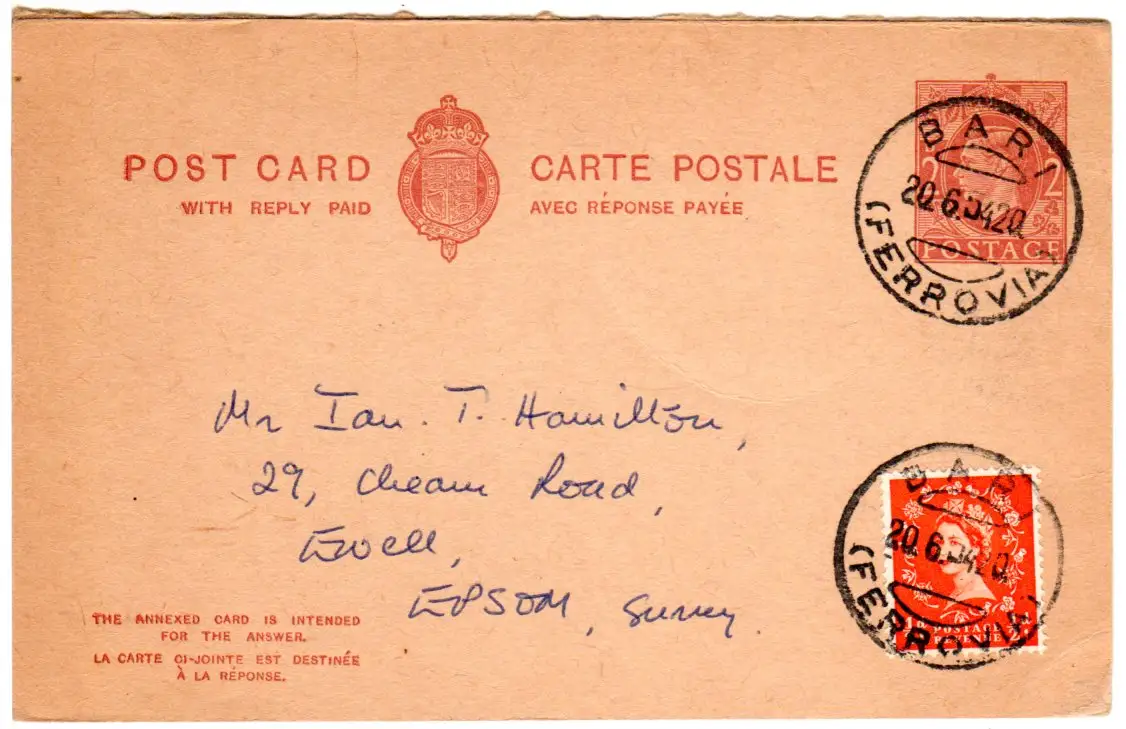 POST CARD
WITH REPLY PAID
CARTE POSTALE
AVEC RÉPONSE PAYÉE
2 2
POSTAGE
BARI
20.6.
(FERROVIA)
Mr Ian. T. Hamilton,
29, Cheam Road,
Ewell,
EPSOM, Surrey
BARI
20.6.
(FERROVIA)
POSTAGE
THE ANNEXED CARD IS INTENDED
FOR THE ANSWER.
LA CARTE CI-JOINTE EST DESTINÉE
À LA RÉPONSE.